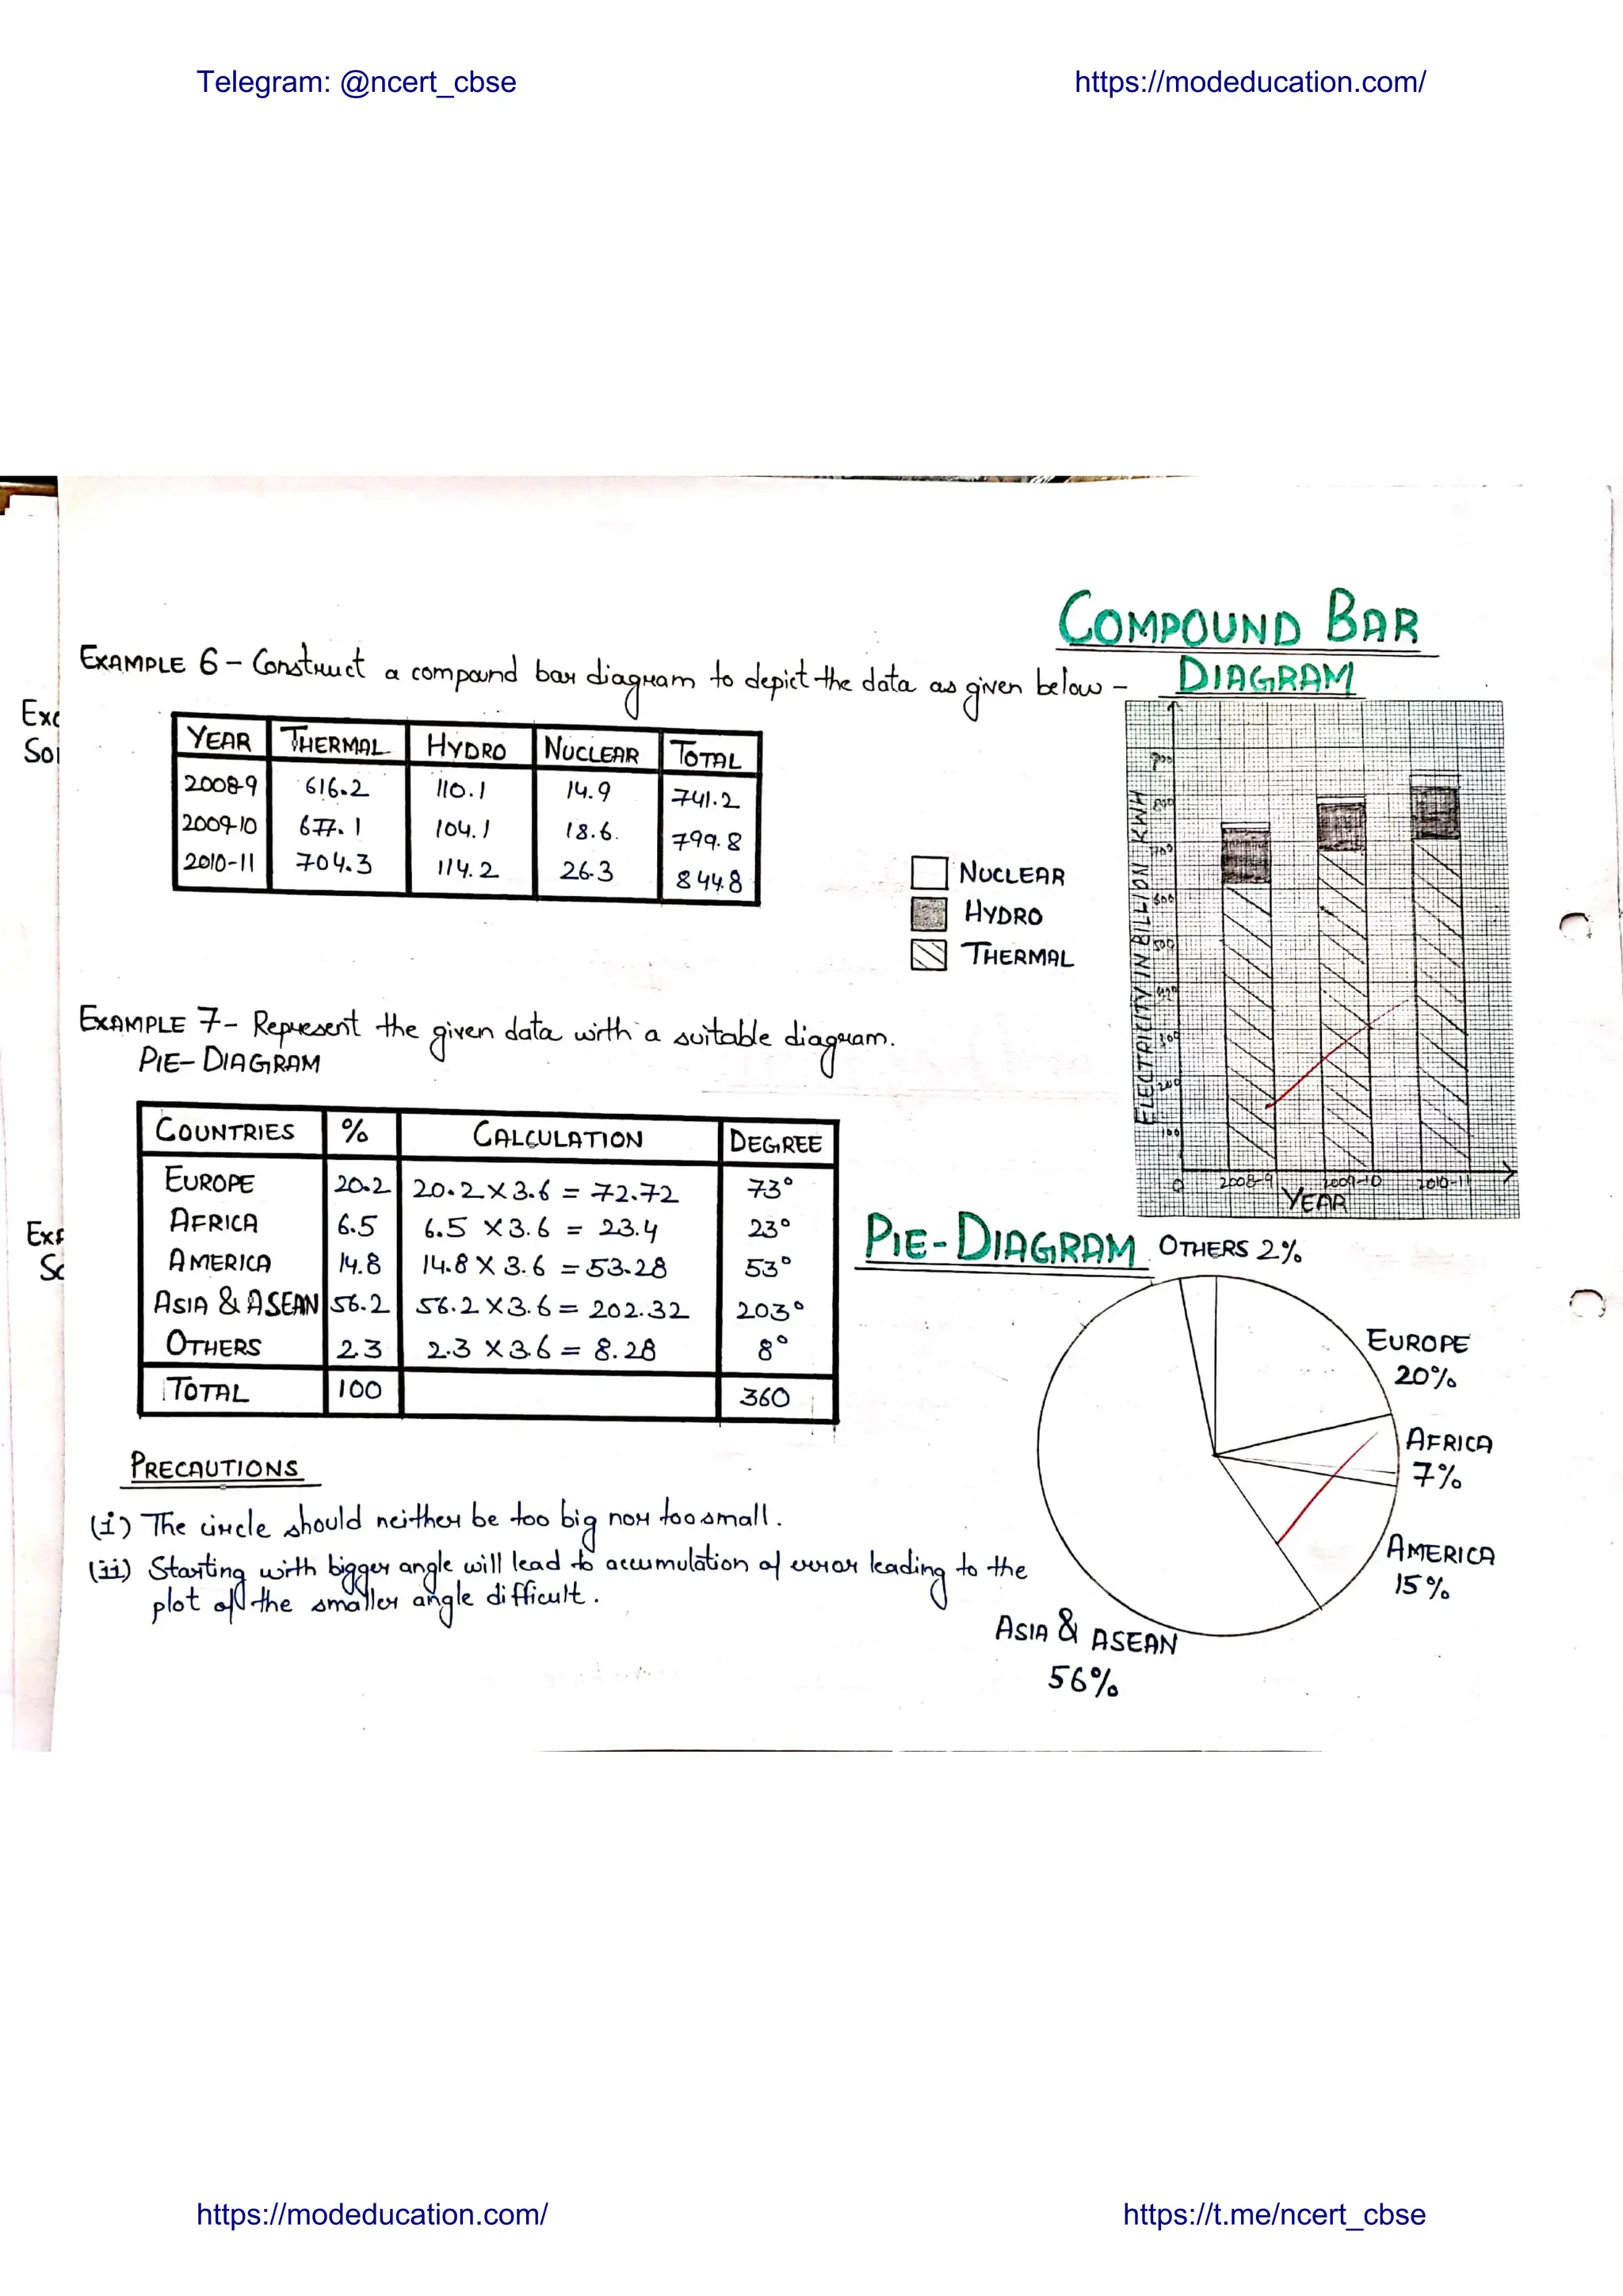 Telegram: @ncert_cbse https://modeducation.com/
COMPOUND BAR
DIAGRAM
EXAMPLE 6 - Construct a compound bar diagram to depict the data as given below -
YEAR THERMAL HYDRO NUCLEAR TOTAL
2008-9 616.2 110.1 14.9 741.2
2009-10 677.1 104.1 18.6 799.8
2010-11 704.3 114.2 26.3 844.8
NUCLEAR
HYDRO
THERMAL
ELECTRICITY IN BILLION KWH
800
700
600
500
200
100
0 2008-9 2009-10 2010-11
YEAR
EXAMPLE 7 - Represent the given data with a suitable diagram.
PIE-DIAGRAM
COUNTRIES % CALCULATION DEGREE
EUROPE 20.2 20.2 X 3.6 = 72.72 73°
AFRICA 6.5 6.5 X 3.6 = 23.4 23°
AMERICA 14.8 14.8 X 3.6 = 53.28 53°
ASIA & ASEAN 56.2 56.2 X 3.6 = 202.32 203°
OTHERS 2.3 2.3 X 3.6 = 8.28 8°
TOTAL 100 360
PIE-DIAGRAM
OTHERS 2%
EUROPE
20%
AFRICA
7%
AMERICA
15%
ASIA & ASEAN
56%
PRECAUTIONS
(i) The circle should neither be too big nor too small.
(ii) Starting with bigger angle will lead to accumulation of error leading to the
plot of the smaller angle difficult.
https://modeducation.com/ https://t.me/ncert_cbse